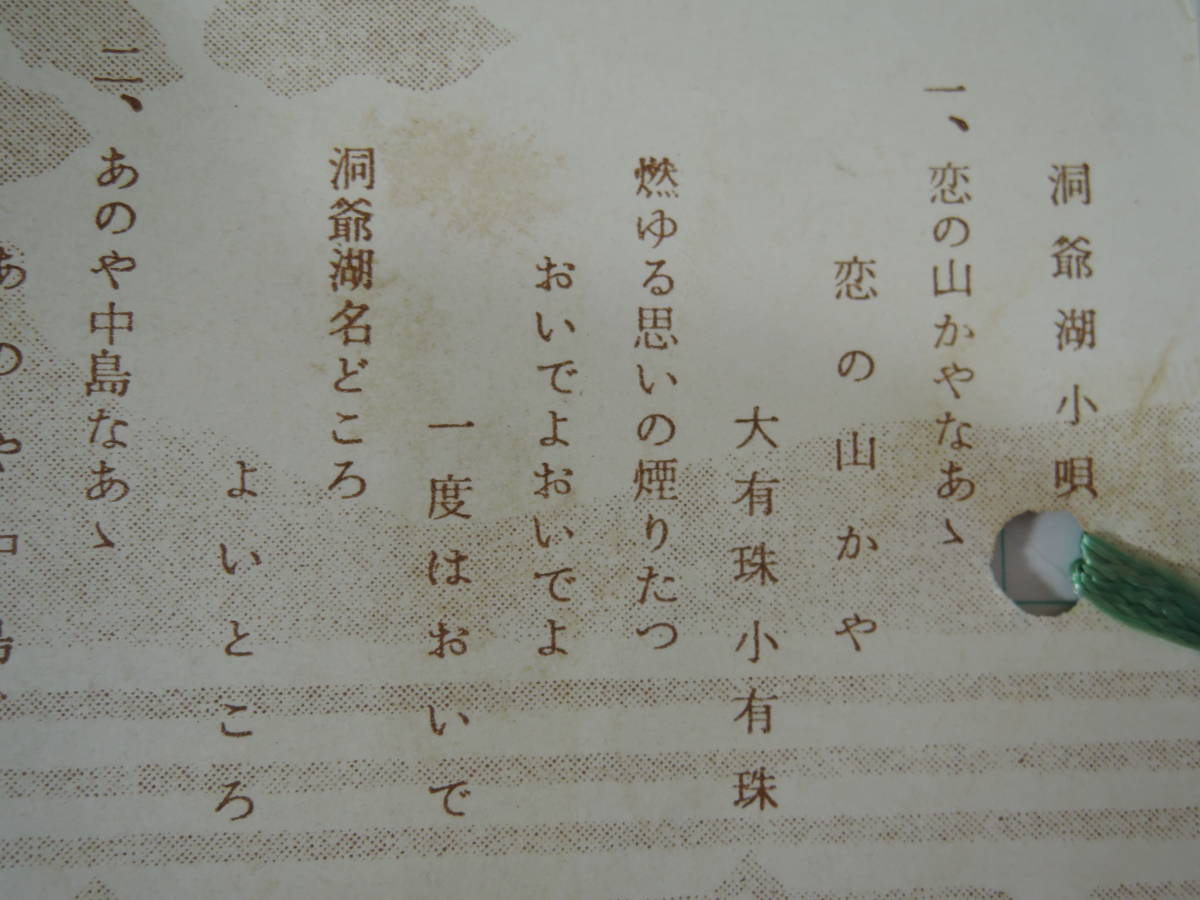 洞爺湖小唄
一、恋の山かやなあゝ
恋の山かや
大有珠小有珠
燃ゆる思いの煙りたつ
おいでよおいでよ
一度はおいで
洞爺湖名どころ
よいところ
二、あのや中島なあゝ
あのや中島